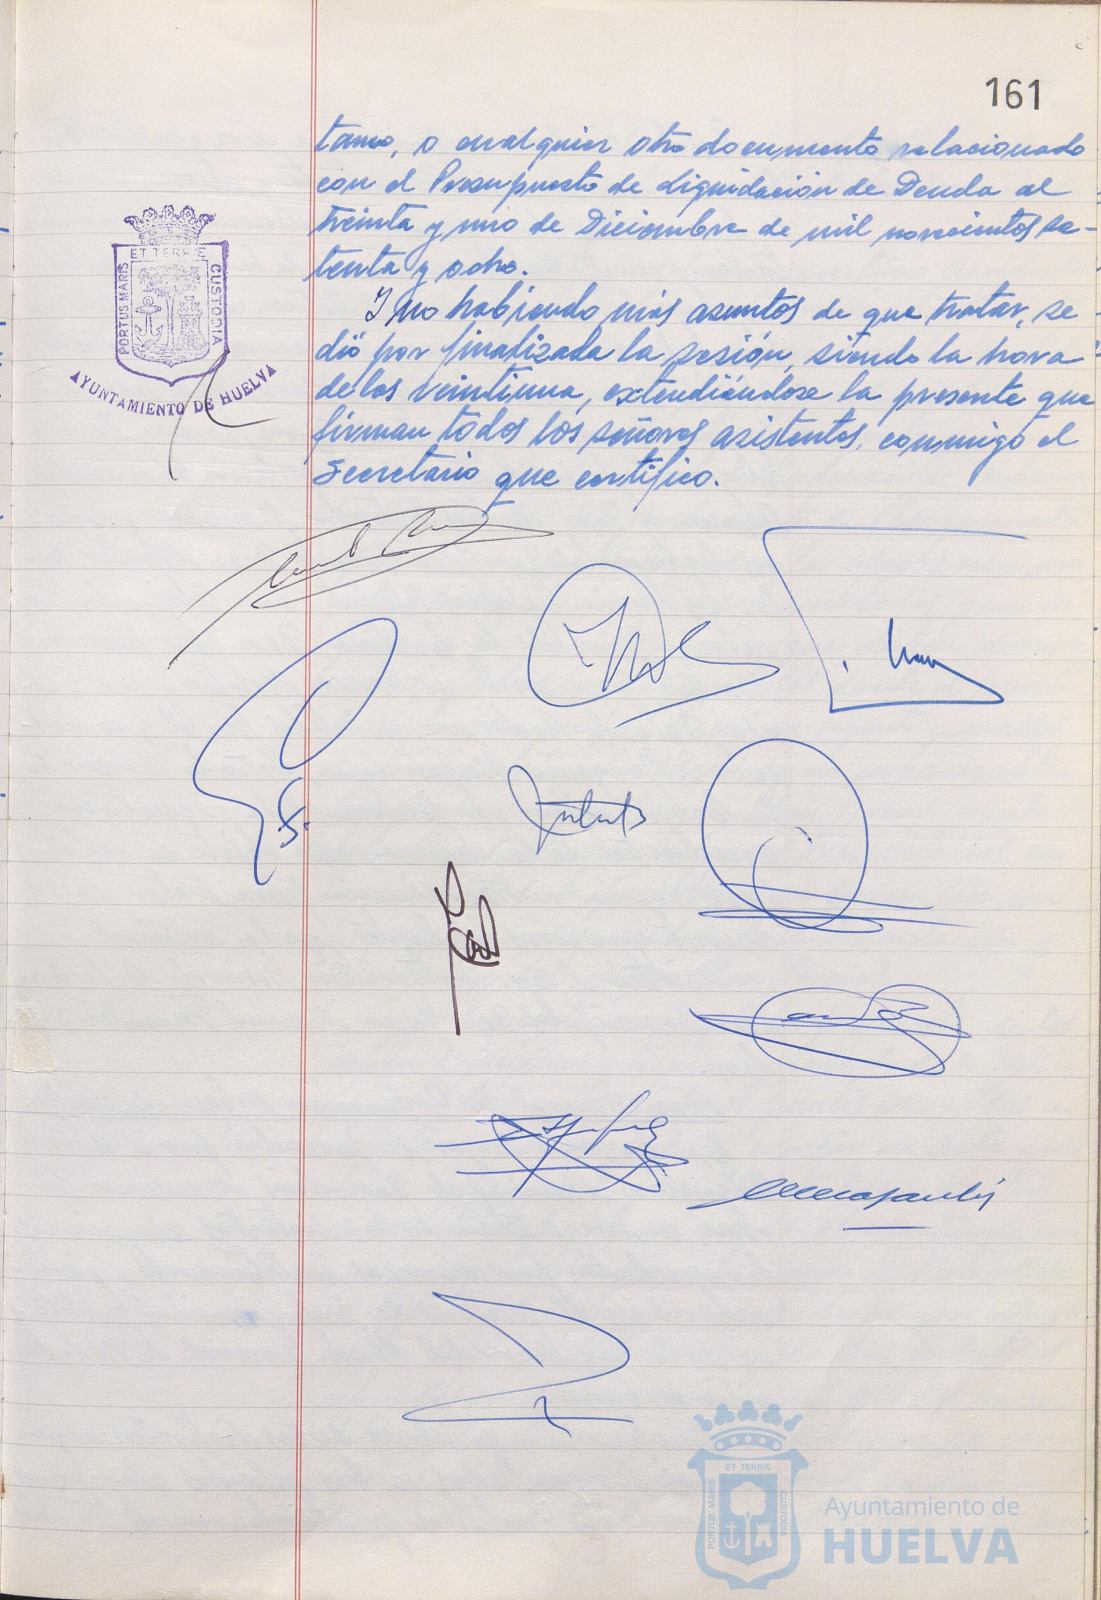 161
tamo, o cualquier otro documento relacionado
con el Presupuesto de Liquidación de Deuda al
treinta y uno de Diciembre de mil novecientos se-
tenta y ocho.
Y no habiendo más asuntos de que tratar, se
dió por finalizada la sesión, siendo la hora
de las veintiuna, extendiéndose la presente que
firman todos los señores asistentes, conmigo el
Secretario que certifico.
ET TERRÆ
PORTUS MARIS
CUSTODIA
AYUNTAMIENTO DE HUELVA
ET TERRÆ
PORTUS MARIS
CUSTODIA
Ayuntamiento de
HUELVA